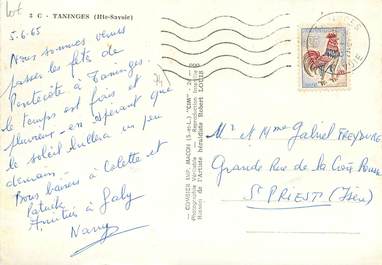 lot
3 C - TANINGES (Hte-Savoie)
5.6.65
Nous sommes venus
passer les fêtes de
Pentecôte à Taninges.
le temps est frais et
pluvieux - en espérant que
le soleil brillera un peu
demain -
Bons baisers à Colette et
Patrick
Amitiés à Gaby
Nany
COMBIER IMP. MACON (S.-et-L.) "CIM"
Photographie Véritable - Reproduction Interdite
Blason de l'Artiste héraldiste Robert LOUIS
Mr et Mme Gabriel
Grande Rue de la Croix Rousse
St PRIEST (Isère)